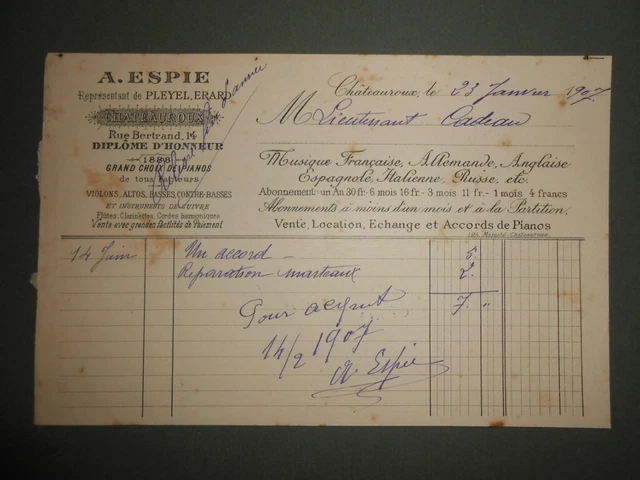 A. ESPIE
Représentant de PLEYEL, ERARD
CHATEAUROUX
Rue Bertrand, 14
DIPLÔME D'HONNEUR
1888
GRAND CHOIX DE PIANOS
de tous facteurs
VIOLONS, ALTOS, BASSES, CONTRE-BASSES
ET INSTRUMENTS DE CUIVRE
Flûtes, Clarinettes, Cordes harmoniques
Vente avec grandes Facilités de Paiement
l'année
Châteauroux, le 23 Janvier 1907.
M Lieutenant Cadeau
Musique Française, Allemande, Anglaise
Espagnole, Italienne, Russe, etc.
Abonnement: un An 30 fr. - 6 mois 16 fr. - 3 mois 11 fr. - 1 mois 4 francs
Abonnements à moins d'un mois et à la Partition.
Vente, Location, Echange et Accords de Pianos
14 Juin Un accord 5.
Réparation marteaux 2.
7. "
Pour acquit
14/2 1907
A. Espie